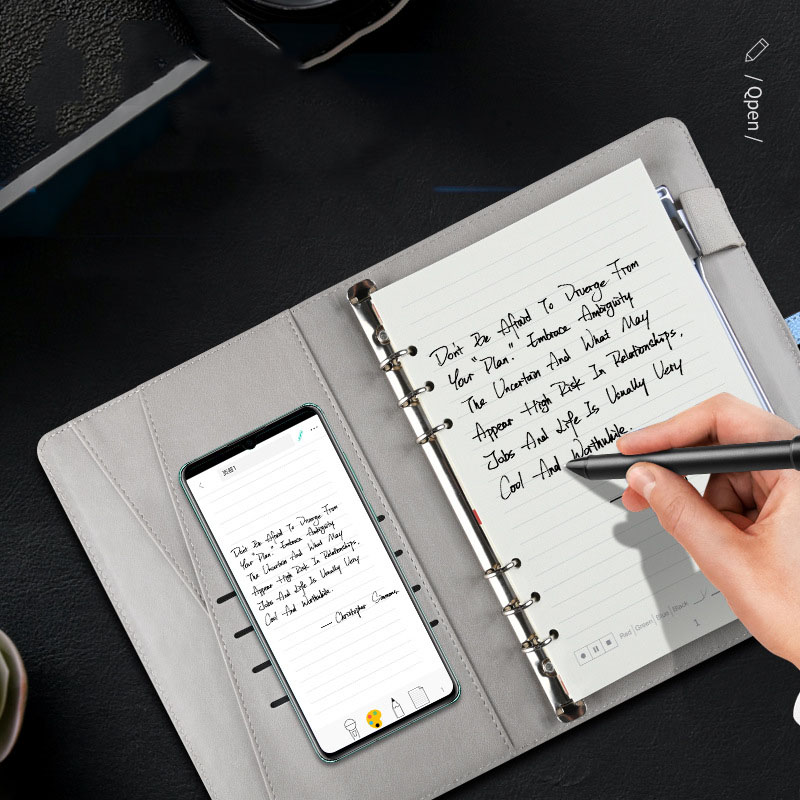 / Qpen /
Don't Be Afraid To Diverge From
Your "Plan." Embrace Ambiguity
The Uncertain And What May
Appear High Risk In Relationships,
Jobs And Life Is Usually Very
Cool And Worthwhile.
Red | Green | Blue | Black
1
Don't Be Afraid To Diverge From
Your "Plan." Embrace Ambiguity
The Uncertain And What May
Appear High Risk In Relationships,
Jobs And Life Is Usually Very
Cool And Worthwhile.
— Christopher Simmons